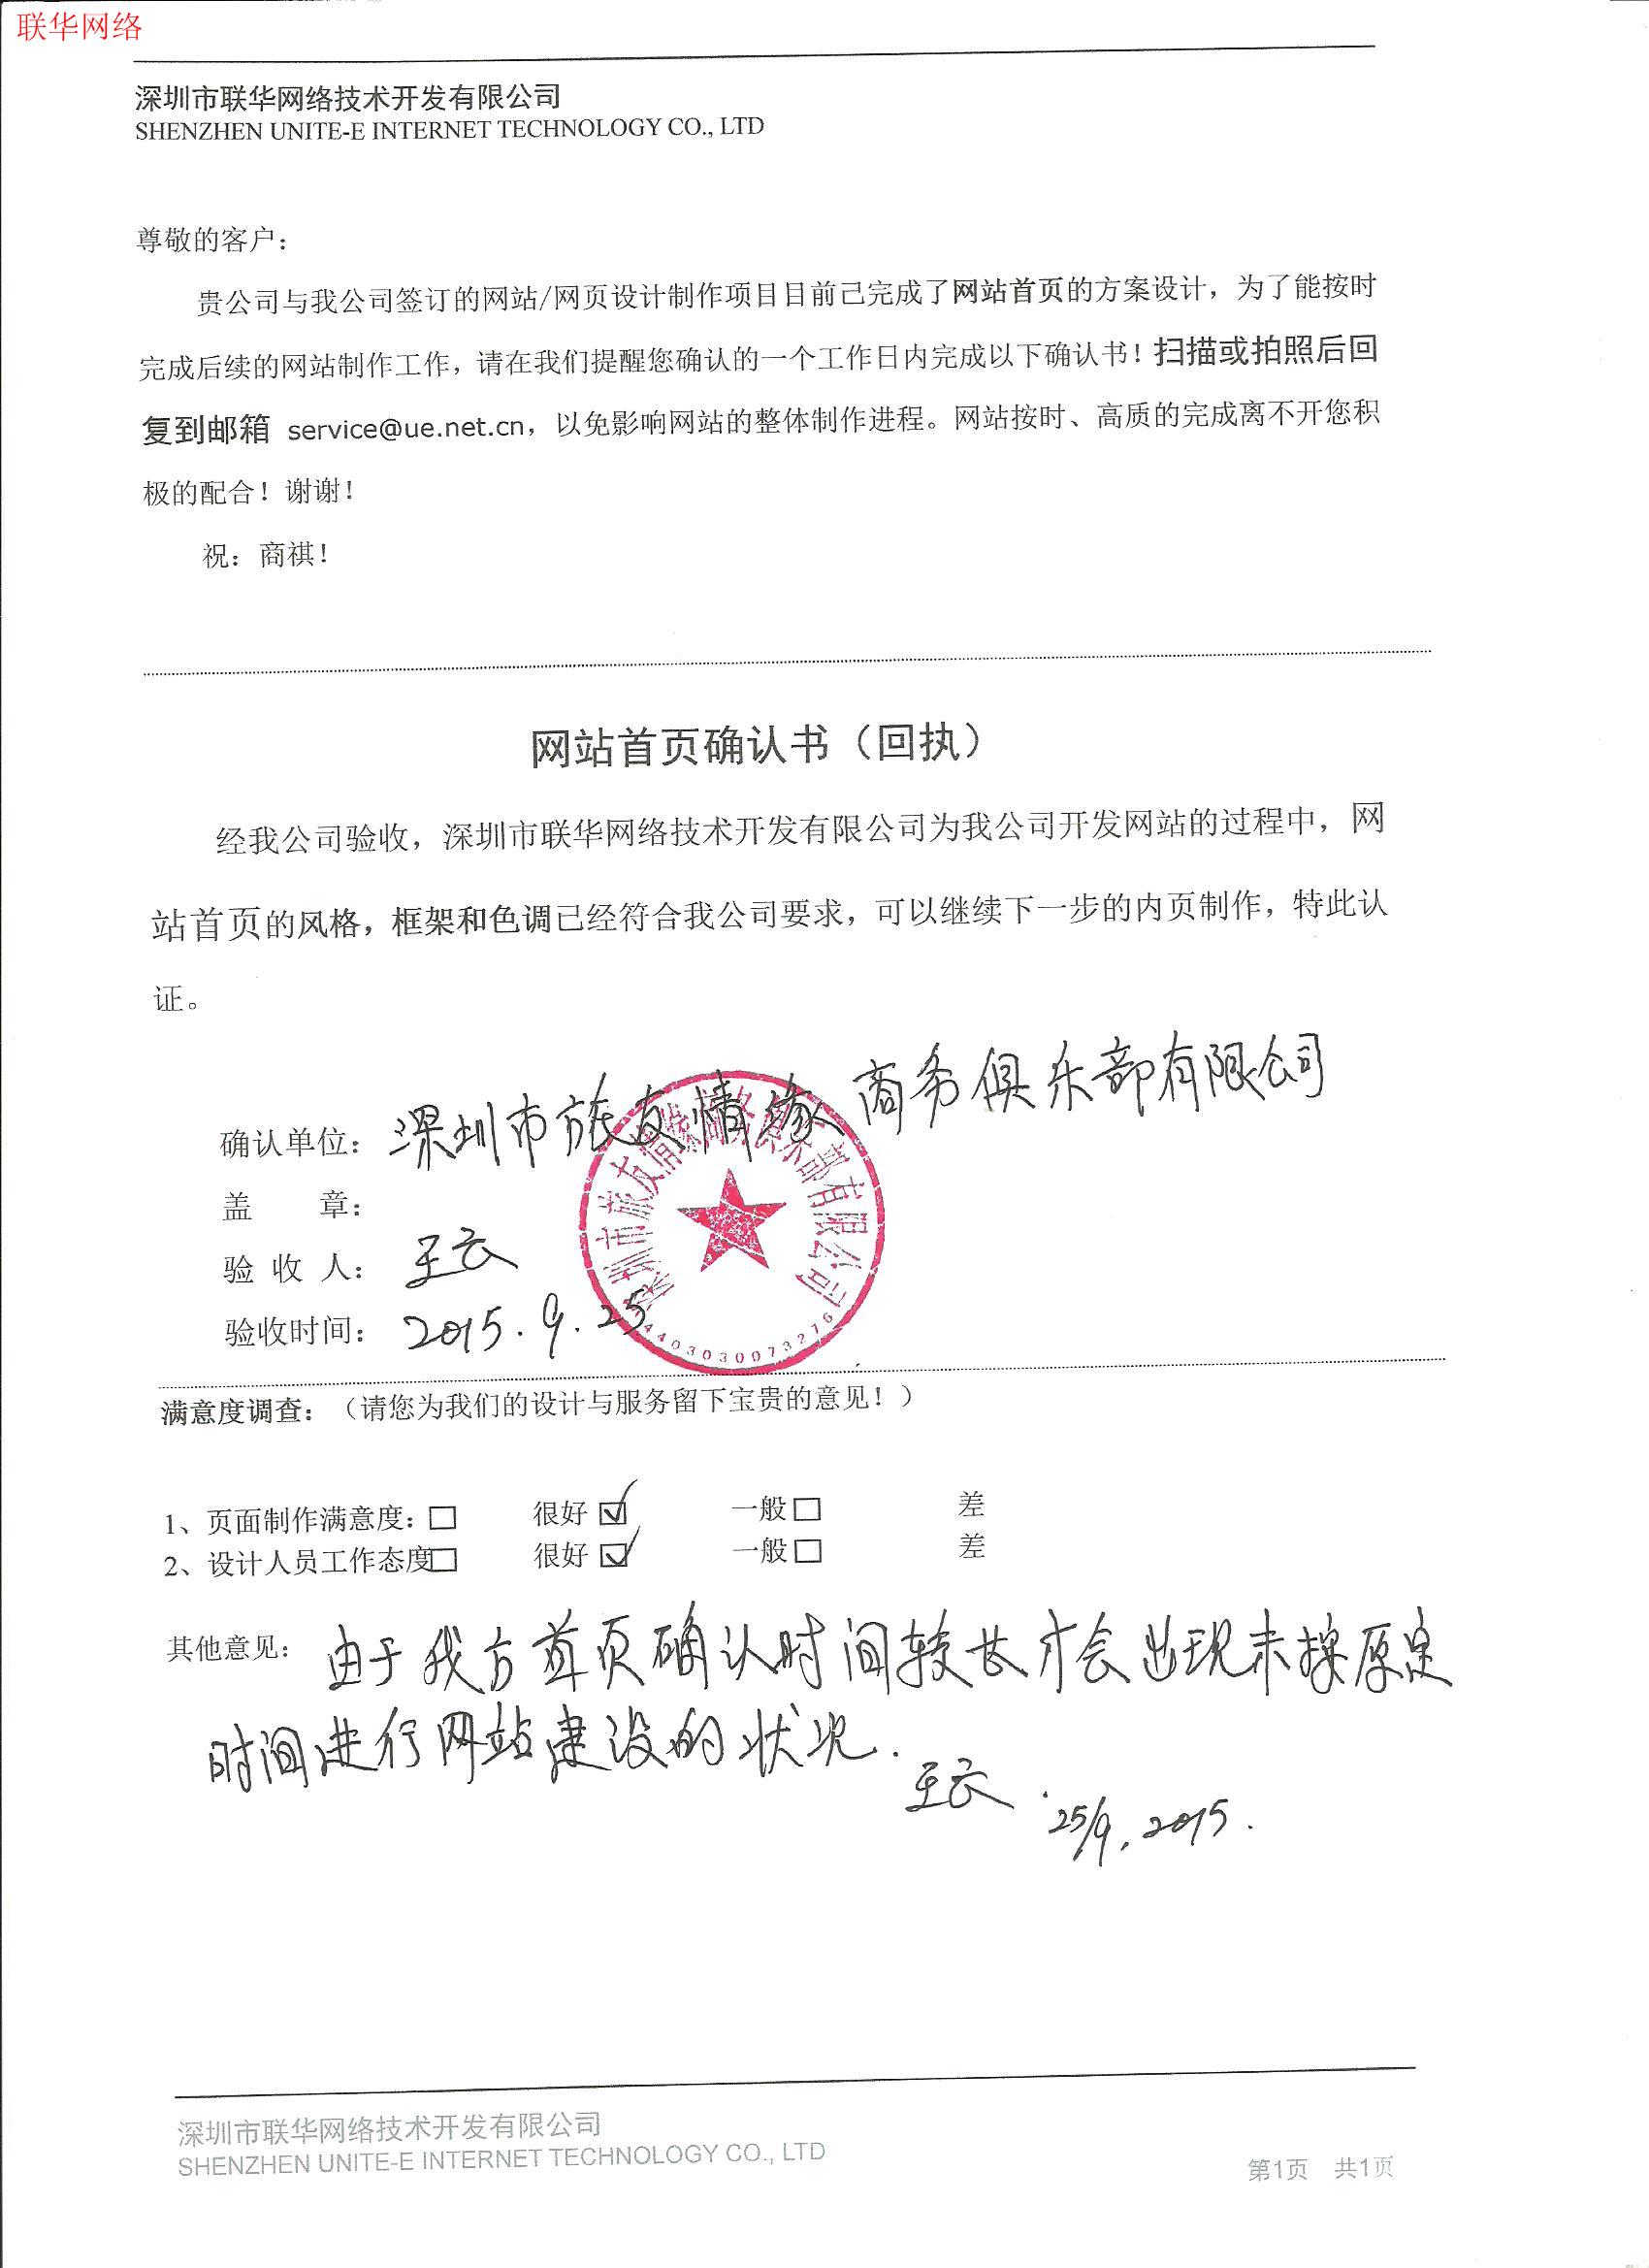 联华网络
深圳市联华网络技术开发有限公司
SHENZHEN UNITE-E INTERNET TECHNOLOGY CO., LTD
尊敬的客户：
贵公司与我公司签订的网站/网页设计制作项目目前已完成了网站首页的方案设计，为了能按时
完成后续的网站制作工作，请在我们提醒您确认的一个工作日内完成以下确认书！扫描或拍照后回
复到邮箱 service@ue.net.cn，以免影响网站的整体制作进程。网站按时、高质的完成离不开您积
极的配合！谢谢！
祝：商祺！
网站首页确认书（回执）
经我公司验收，深圳市联华网络技术开发有限公司为我公司开发网站的过程中，网
站首页的风格，框架和色调已经符合我公司要求，可以继续下一步的内页制作，特此认
证。
确认单位：深圳市旅友情缘商务俱乐部有限公司
盖 章：
深圳市旅友情缘商务俱乐部有限公司
4403030073276
验 收 人：王云
验收时间：2015.9.25
满意度调查：（请您为我们的设计与服务留下宝贵的意见！）
1、页面制作满意度：□ 很好 ☑ 一般 □ 差
2、设计人员工作态度□ 很好 ☑ 一般 □ 差
其他意见：由于我方首页确认时间较长才会出现未按原定
时间进行网站建设的状况.
王云.
25/9,2015.
深圳市联华网络技术开发有限公司
SHENZHEN UNITE-E INTERNET TECHNOLOGY CO., LTD
第1页 共1页